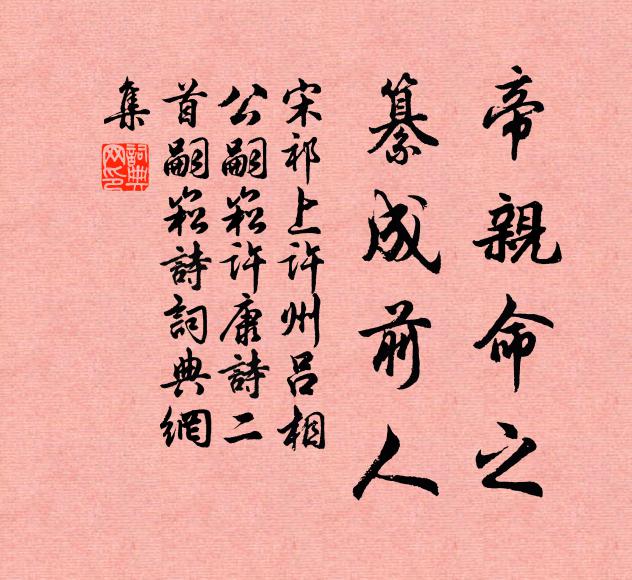 帝親命之
纂成前人
宋祁上許州呂相
公嗣崧許康詩二
首嗣崧詩詞典網
集
詞典網印